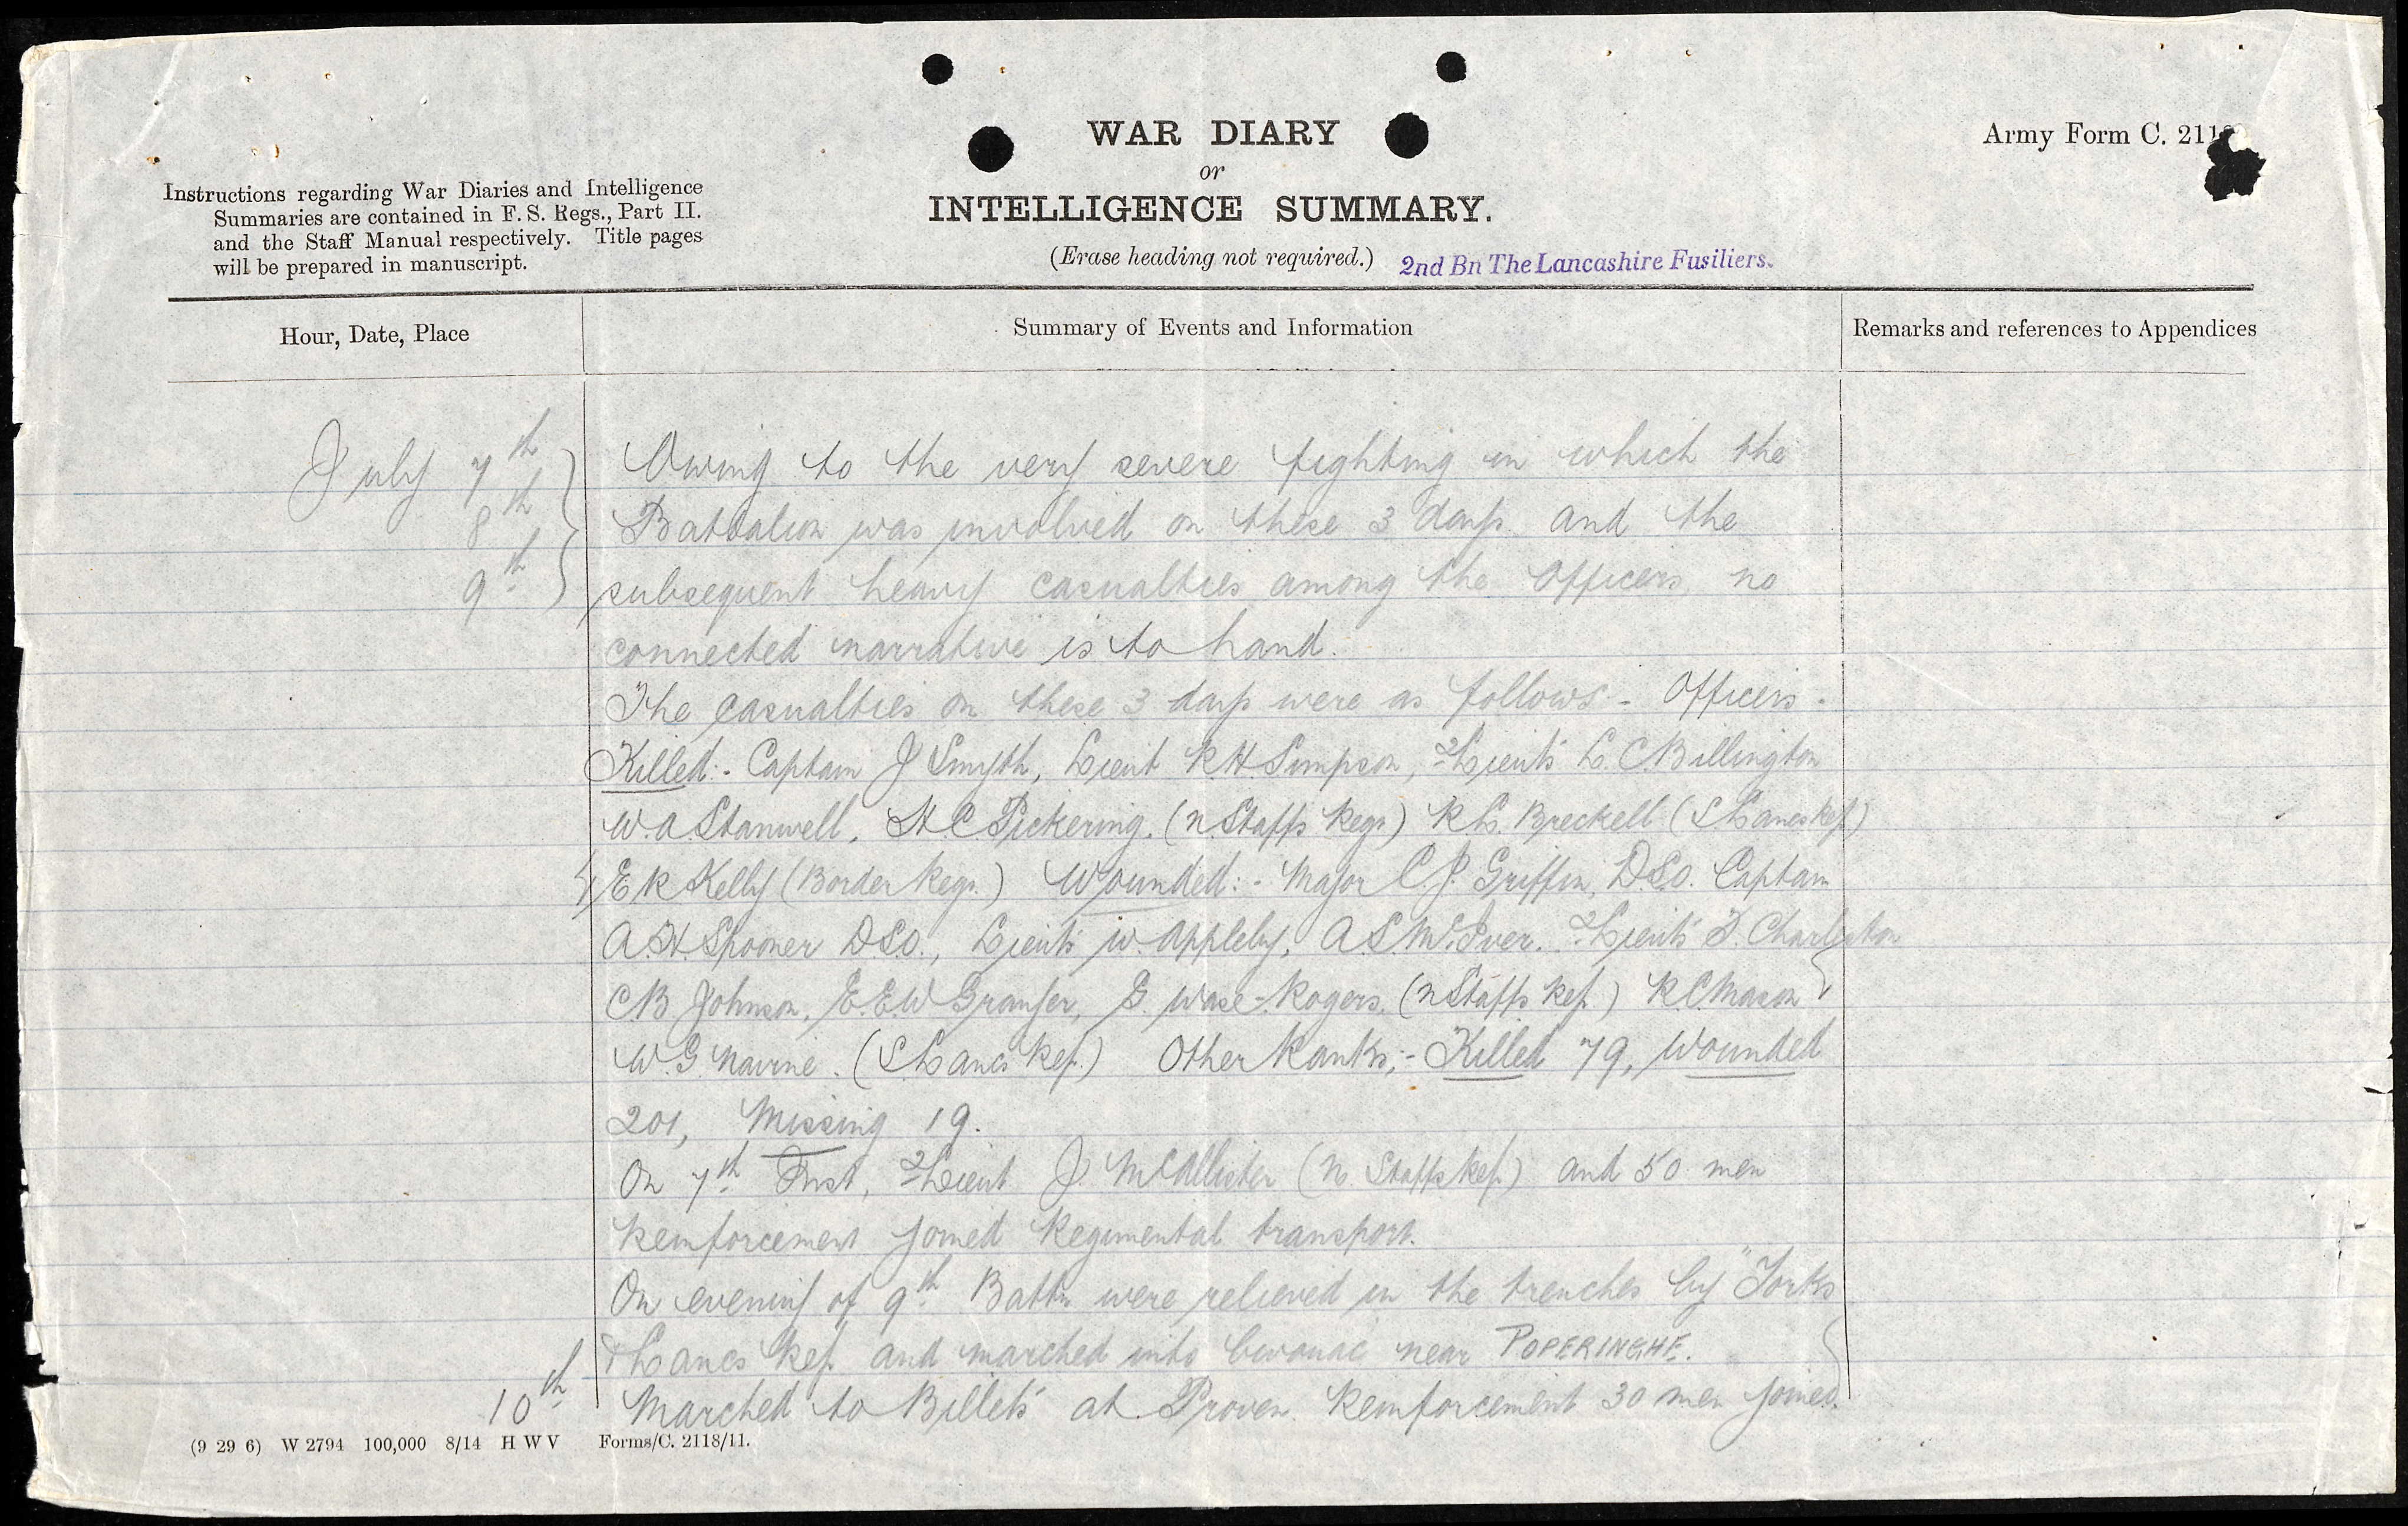 WAR DIARY
or
INTELLIGENCE SUMMARY.
(Erase heading not required.)
2nd Bn The Lancashire Fusiliers.
Army Form C. 211
Instructions regarding War Diaries and Intelligence
Summaries are contained in F. S. Regs., Part II.
and the Staff Manual respectively. Title pages
will be prepared in manuscript.
Hour, Date, Place
Summary of Events and Information
Remarks and references to Appendices
July 7th
8th
9th
Owing to the very severe fighting in which the
Battalion was involved on these 3 days and the
subsequent heavy casualties among the Officers, no
connected narrative is to hand.
The casualties on these 3 days were as follows:- Officers -
Killed:- Captain J Smyth, Lieut R.H. Simpson, 2Lieuts L.C. Billington
W.A Stanwell, H C Pickering. (N. Staffs Regt) R L. Breckell (S. Lancs Regt)
E R Kelly (Border Regt.) Wounded:- Major C.J. Griffin, D.S.O. Captain
A.H. Spooner D.S.O., Lieuts W. Appleby, A.S. McIver. 2Lieuts Charleston
C B Johnson, E.E.W Granger, G. Wase-Rogers, (N Staffs Regt.) R.C. Mason
W.G. (S. Lancs Regt.) Other Ranks:- Killed 79, Wounded
201, Missing 19.
On 7th Inst, 2Lieut J. McAllister (N. Staffs Regt) and 50 men
Reinforcement joined Regimental transport.
On evening of 9th Battn were relieved in the trenches by "Yorks
& Lancs Regt and marched into bivouac near POPERINGHE.
10th
Marched to Billets at Proven. Reinforcement 30 men joined.
(9 29 6) W 2794 100,000 8/14 H W V Forms/C. 2118/11.